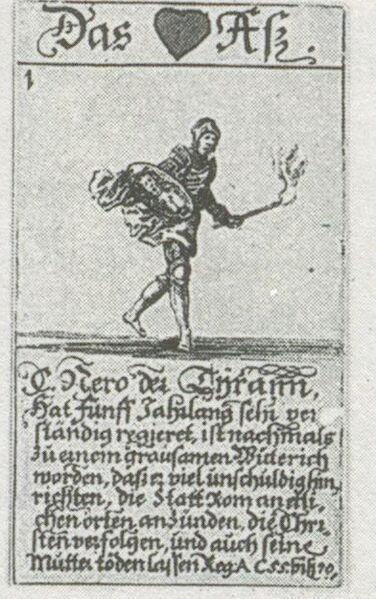 Das Aß.
1
C. Nero der Tÿrann,
Hat funff Jahrlang sehr ver
ständig regieret, ist nachmals
zu einem grausamen Wüterich
worden, daß er viel unschuldig hin,
richten, die Statt Rom an etli,
chen orten anzünden, die Chri,
sten verfolgen, und auch seine
Mutter töden lassen Reg. A C 55. biß 70,